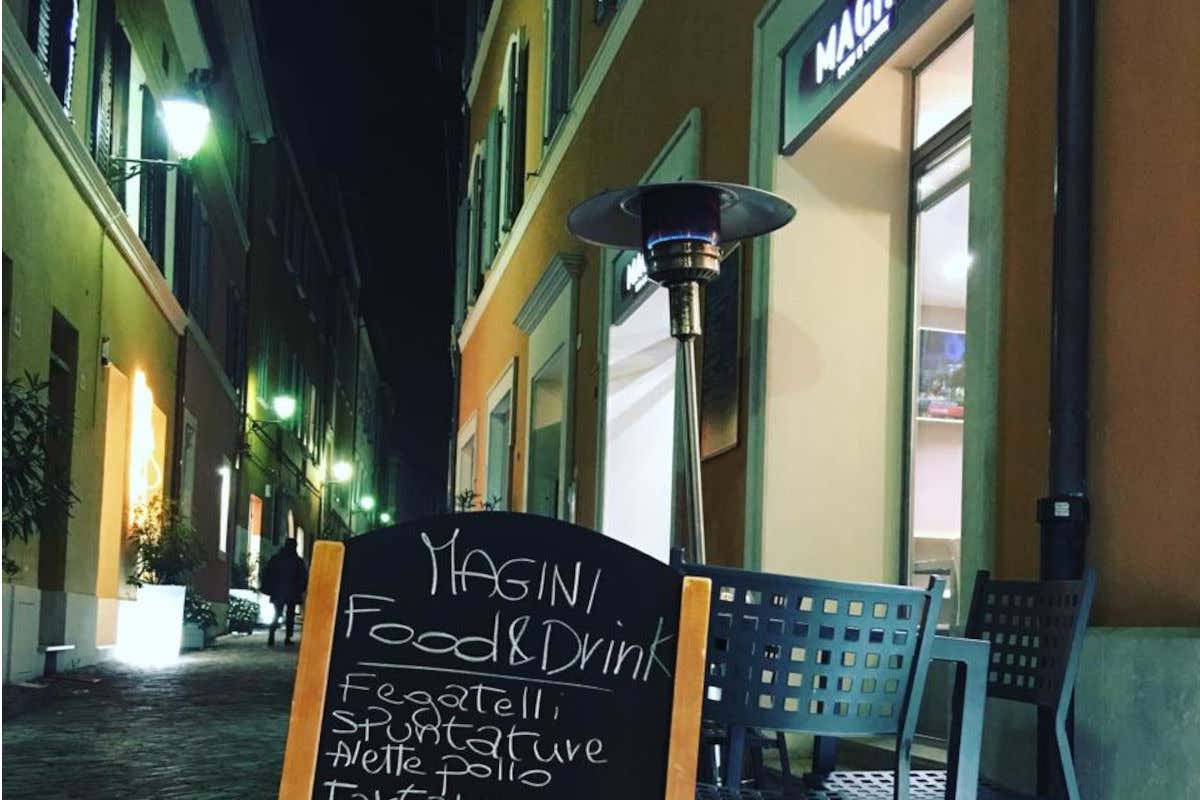 MAGI
MAGINI
Food&Drink
Fegatelli
Spuntature
Alette pollo